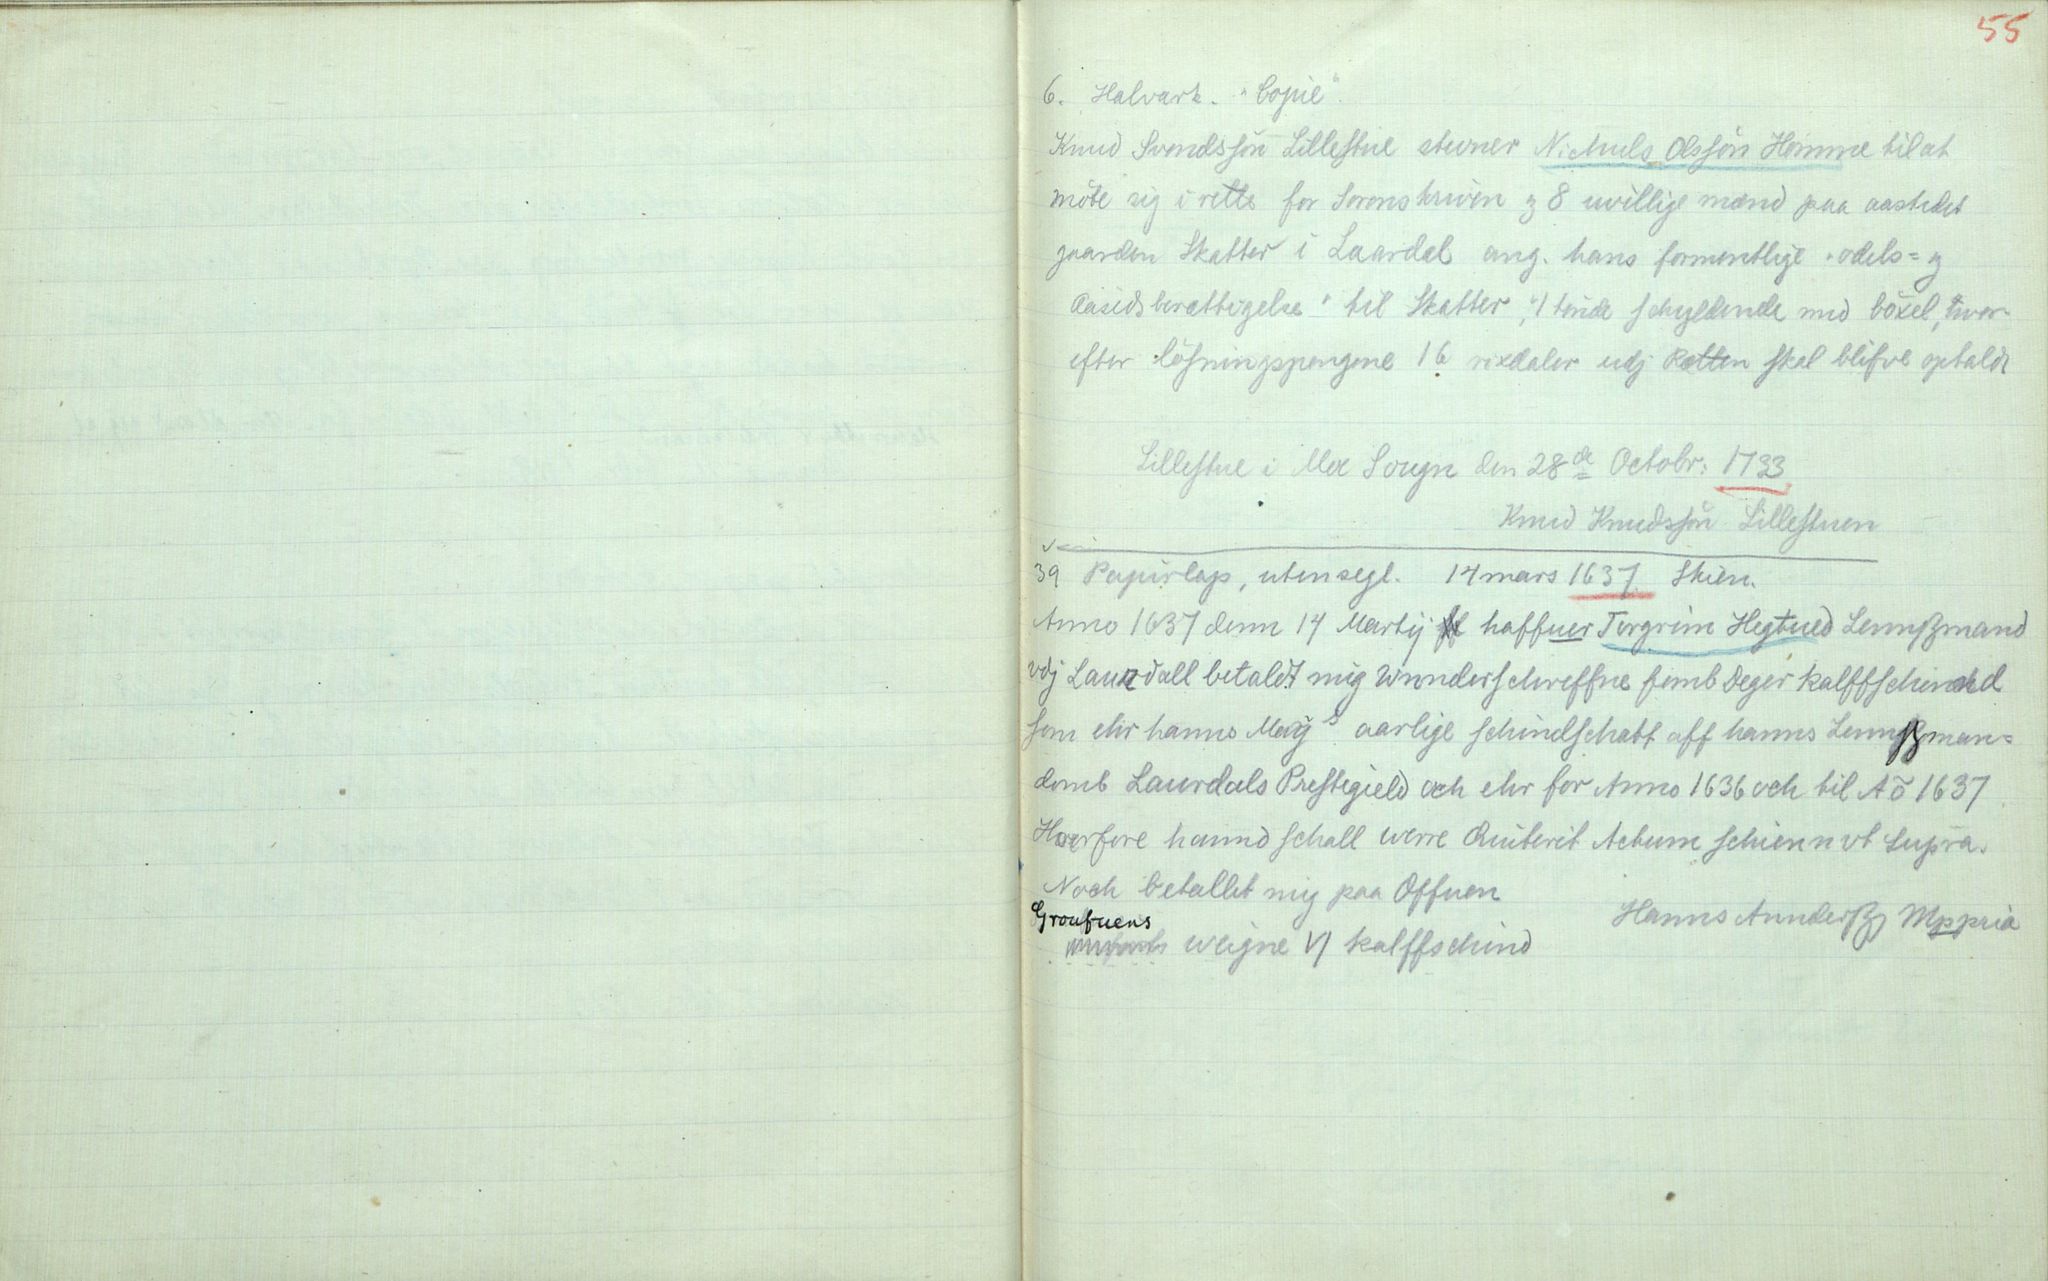 55
6. Halvark. "Copie".
Knud Svendssøn Lillestue stevner Nichuls Olssøn Homme til at
møte sig i rette for Sorenskriven og 8 uvillige mænd paa aastedet
gaarden Skatter i Laardal ang. hans formentlige "odels= og
Aasædsberættigelse" til Skatter, "1 tønde schyldende med böxel", hvor-
efter løsningspengene 16 rixdaler udj Retten skal blifve optaldt
Lillestue i Moe Sougn den 28de Octobr: 1733
Knud Knudssøn Lillestuen
39 Papirlap, uten segl. 14 mars 1637 Skien.
Anno 1637 denn 14 Martij haffuer Torgrim Hegtued Lennßmand
vdj Laurdall betaldt mig Wnnderschreffne femb Deger kalffschind
som ehr hanns Mayts aarlige schindschatt aff hanns Lennßman=
domb Laurdals Prestegield och ehr for Anno 1636 och til Aō 1637
Huorfore hannd schall werre Quiterit Actum schienn vt supra.
Noch betallet mig paa Offuen
Groufuens
weigne VJ kalffschind
Hanns Annderß Mppria